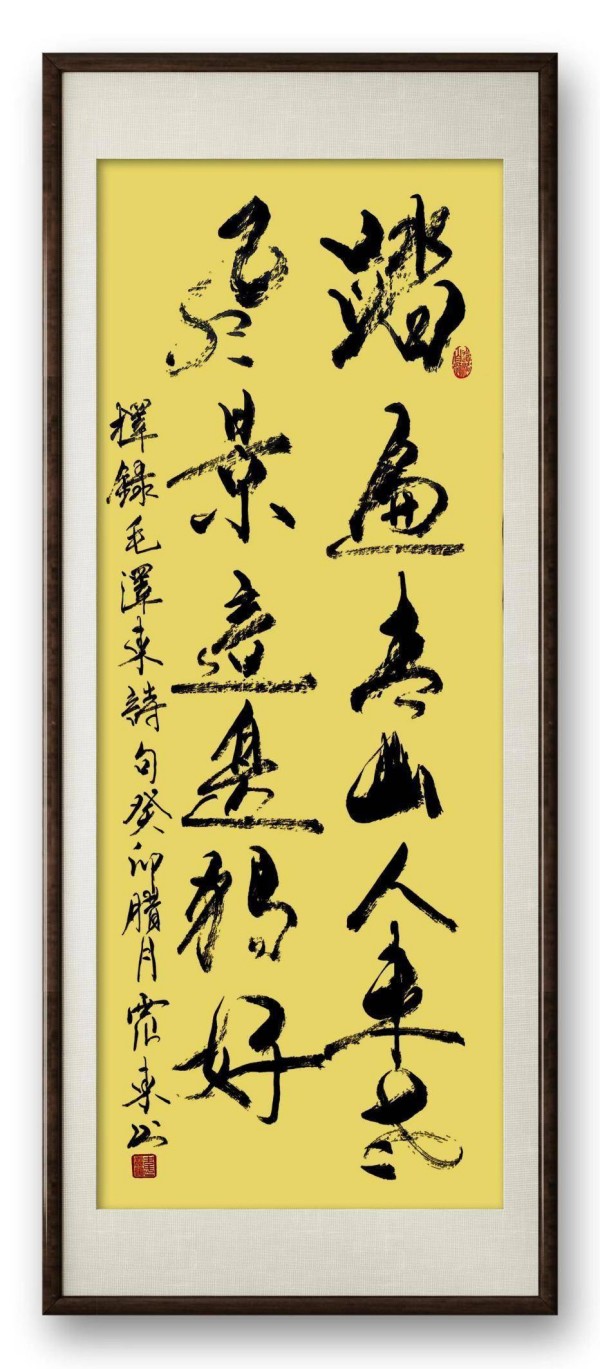 踏遍青山人未老
風景這邊獨好
擇錄毛澤东詩句癸卯臘月东书